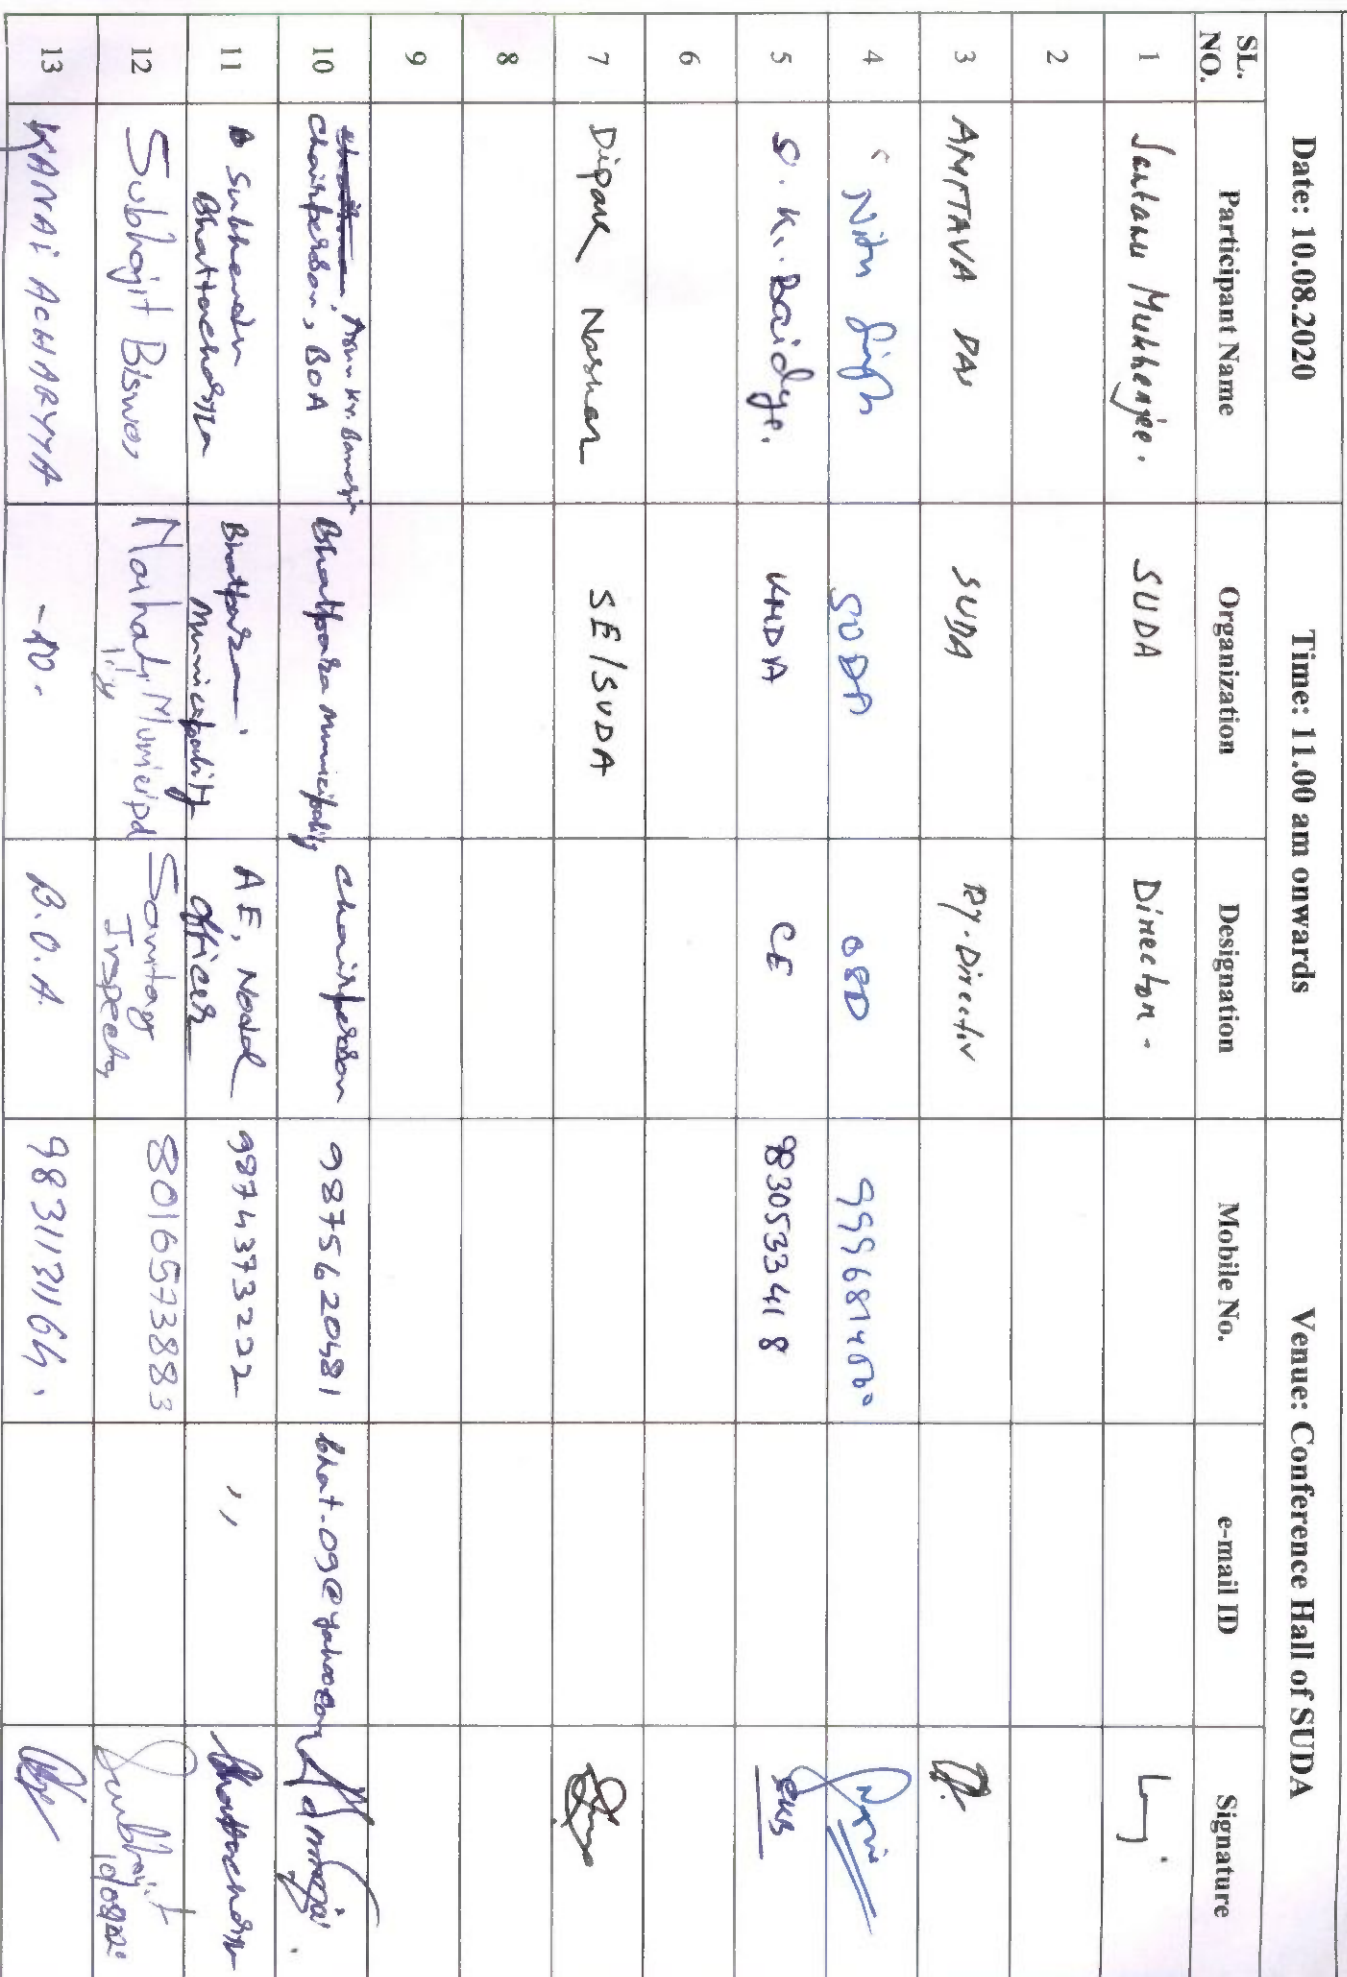 Date: 10.08.2020 Time: 11.00 am onwards Venue: Conference Hall of SUDA
SL. NO. Participant Name Organization Designation Mobile No. e-mail ID Signature
1 Santanu Mukherjee. SUDA Director -
2
3 AMITAVA DAS SUDA Dy. Director
4 Nitu Singh SUDA OSD
5 S. K. Baidya. KMDA CE 9830533418
6
7 Dipak Naskar SE/SUDA
8
9
10 Arun Kr. Banerjee
Chairperson, BOA Bhatpara Municipality Chairperson 9875620481
11 Subhendu Bhatpara AE, Nodal 9874373222 ,,
Bhattacharyya Municipality Officer
12 Subhojit Biswas Naihati Municipality Sanitary 8016573883 Subhojit
Inspector 10/08/2020
13 KANAI ACHARYYA -DO- B.O.A. 9831131164.